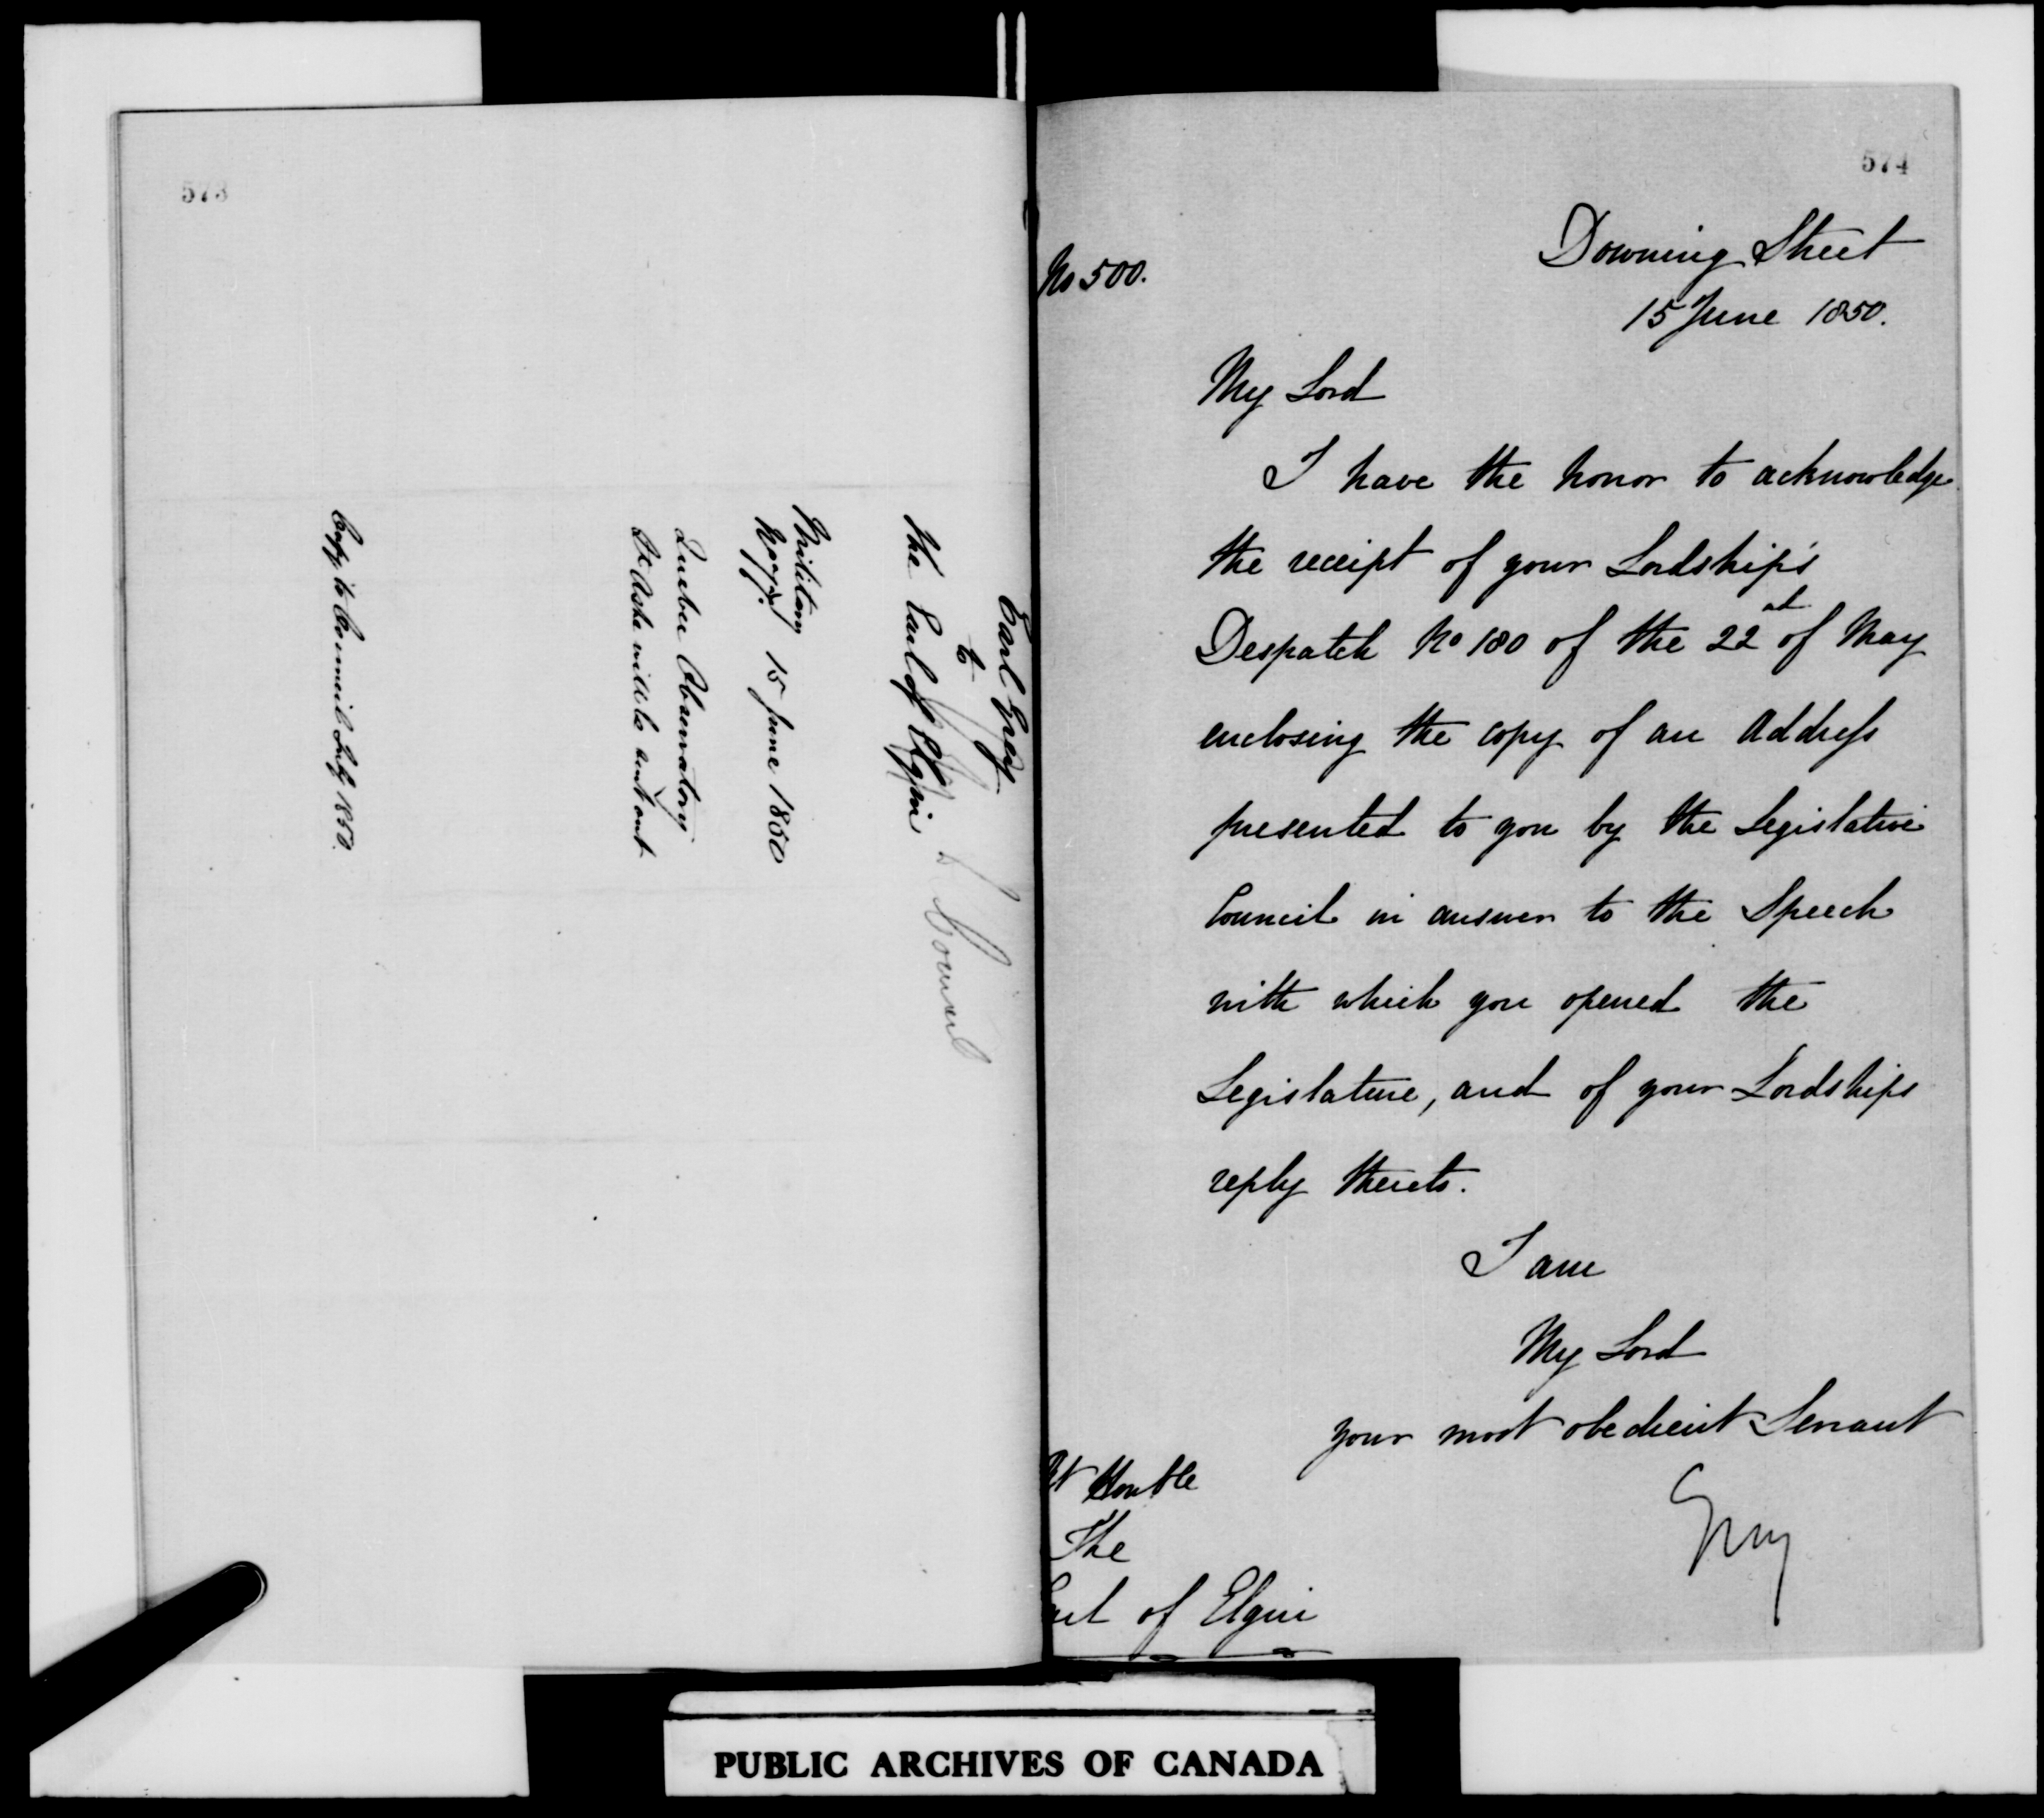 573
Earl Grey
to
The Earl of Elgin
Council
Military
15 June 1850
Quebec Observatory
Lt Ashe will be sent out
Copy to Council July 1850.
574
No 500.
Downing Street
15 June 1850.
My Lord
I have the honor to acknowledge
the receipt of your Lordship's
Despatch No 180 of the 22nd of May
enclosing the copy of an Address
presented to you by the Legislative
Council in answer to the Speech
with which you opened the
Legislature, and of your Lordships
reply thereto.
I am
My Lord
your most obedient Servant
Grey
Rt Honble
The
Earl of Elgin
PUBLIC ARCHIVES OF CANADA